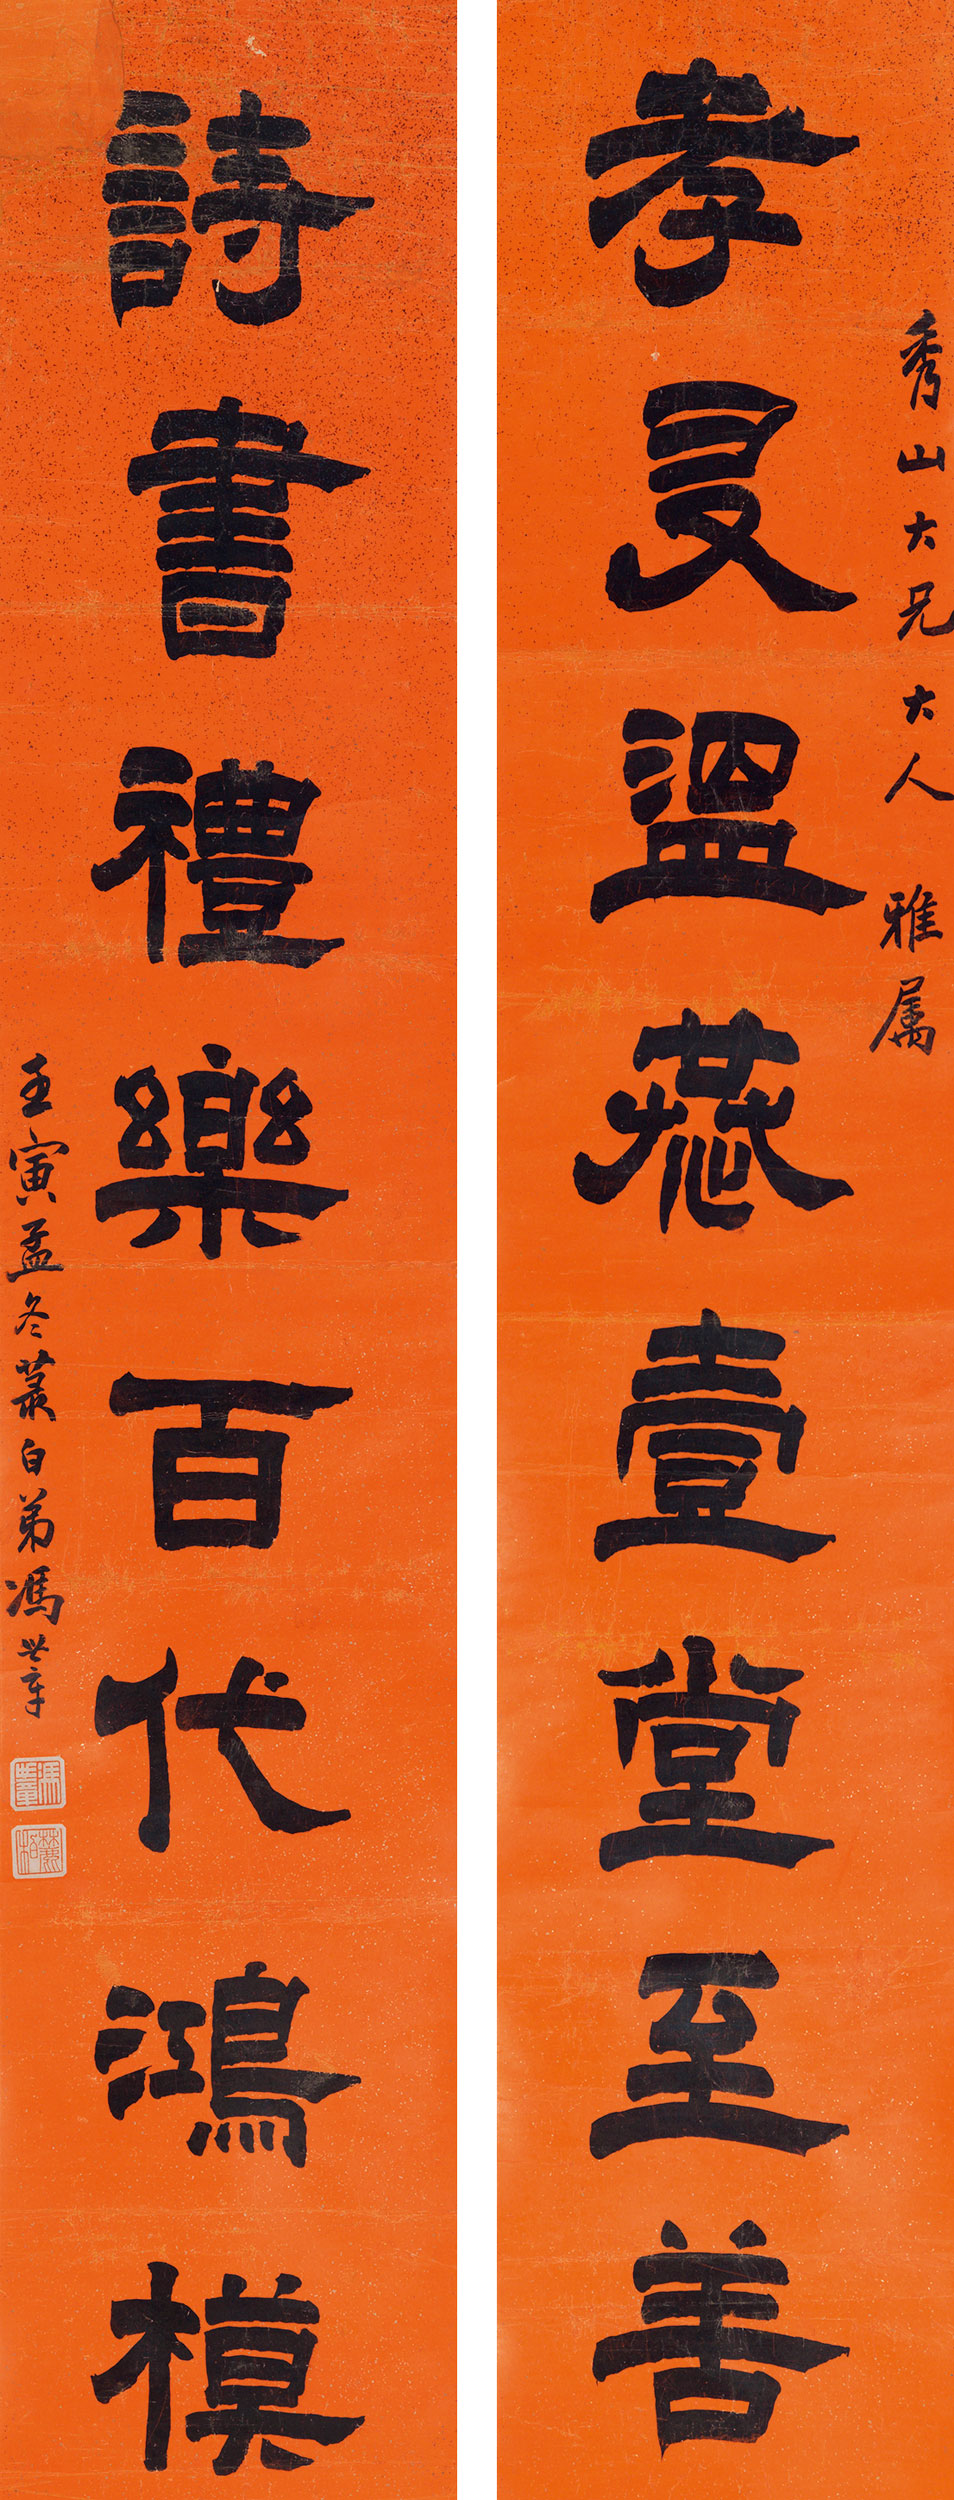 孝友溫恭壹堂至善
秀山大兄大人 雅属
詩書禮樂百代鴻模
壬寅孟冬菉白弟馮世